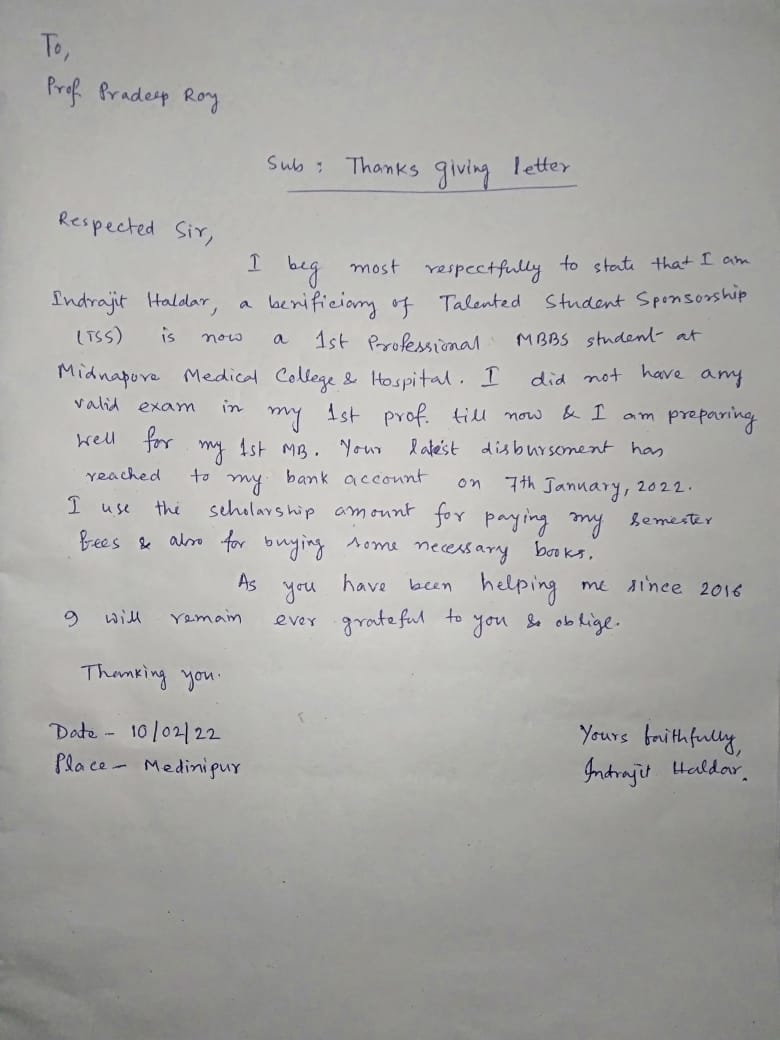 To,
Prof. Pradeep Roy
Sub : Thanks giving letter
Respected Sir,
I beg most respectfully to state that I am
Indrajit Haldar, a benificiary of Talented Student Sponsorship
(TSS) is now a 1st Professional MBBS student at
Midnapore Medical College & Hospital. I did not have any
valid exam in my 1st prof. till now & I am preparing
well for my 1st MB. Your latest disbursement has
reached to my bank account on 7th January, 2022.
I use the scholarship amount for paying my semester
fees & also for buying some necessary books.
As you have been helping me since 2016
I will remain ever grateful to you & oblige.
Thanking you.
Date - 10/02/22
Yours faithfully,
Place - Medinipur
Indrajit Haldar.